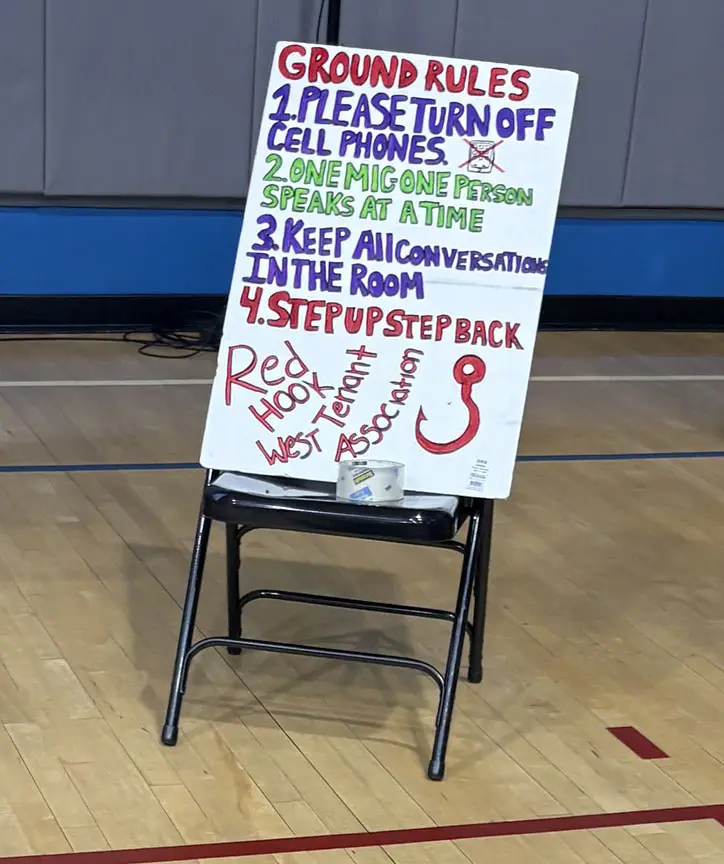 GROUND RULES
1. PLEASE TURN OFF
CELL PHONES.
2. ONE MIC-ONE PERSON
SPEAKS AT A TIME
3. KEEP All CONVERSATIONS
IN THE ROOM
4. STEP UP STEP BACK
Red
HOOK
West Tenant
Association